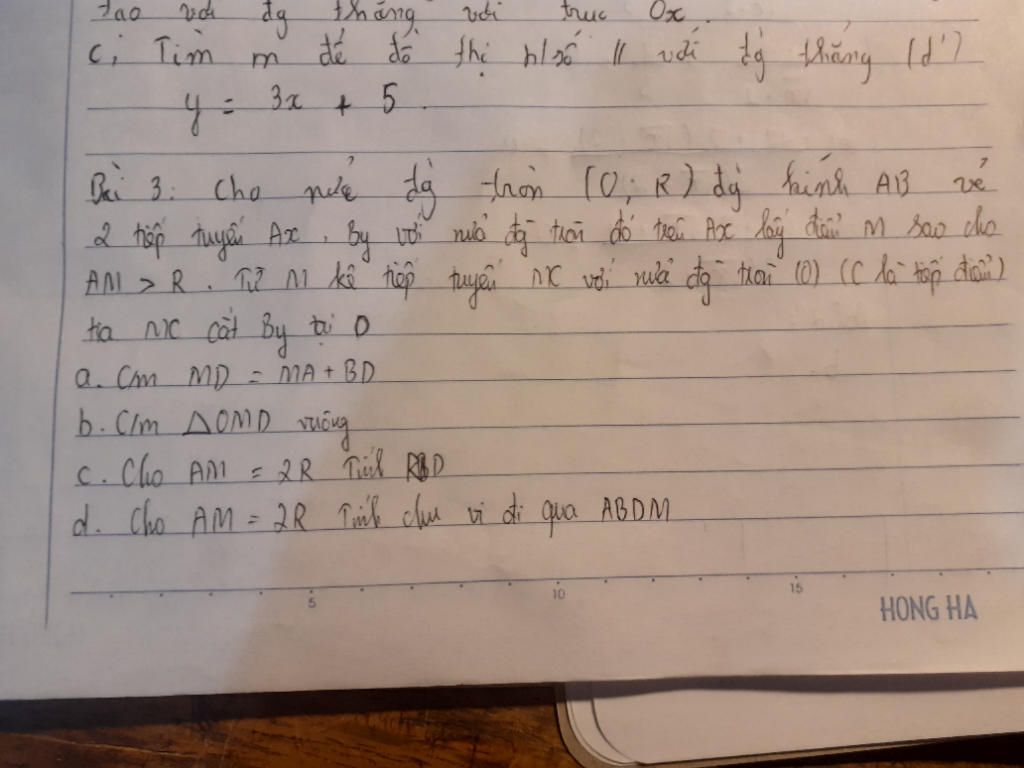 tạo với đg thẳng với trục Ox.
c, Tìm m để đồ thị h/số // với đg thẳng (d')
y = 3x + 5.
Bài 3: Cho nửa đg tròn (O; R) đg kính AB vẽ
2 tiếp tuyến Ax, By với nửa đg tròn đó trên Ax lấy điểm M sao cho
AM > R. Từ M kẻ tiếp tuyến MC với nửa đg tròn (O) (C là tiếp điểm)
tia MC cắt By tại D
a. Cm MD = MA + BD
b. C/m △OMD vuông
c. Cho AM = 2R Tính BD
d. Cho AM = 2R Tính chu vi đi qua ABDM
5 10 15
HONG HA